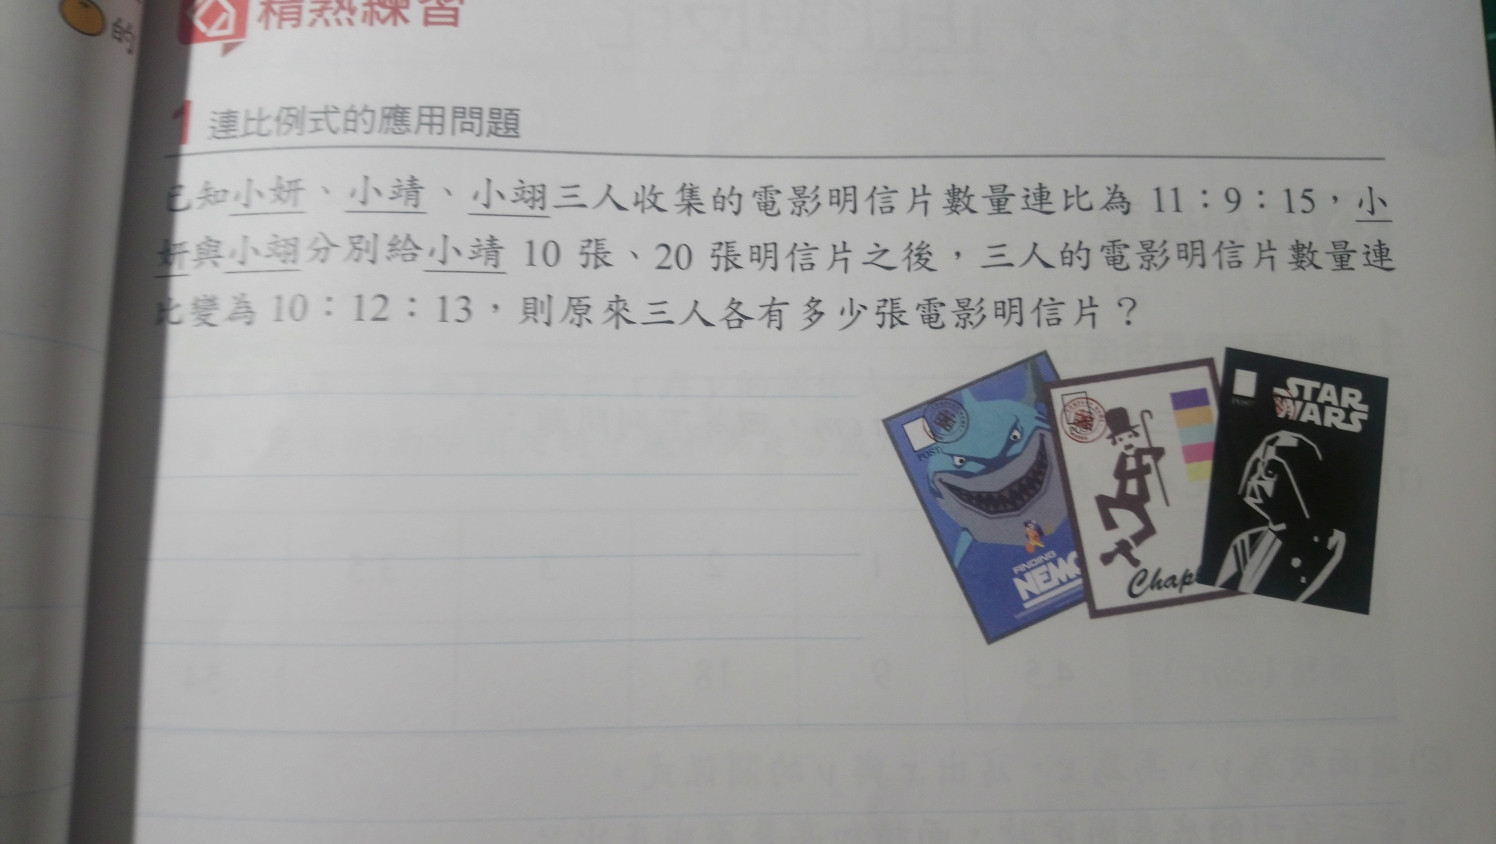 的
精熟練習
1 連比例式的應用問題
已知小妍、小靖、小翊三人收集的電影明信片數量連比為 11：9：15，小
妍與小翊分別給小靖 10 張、20 張明信片之後，三人的電影明信片數量連
比變為 10：12：13，則原來三人各有多少張電影明信片？
POST
FINDING
NEMO
Chap
POST
STAR
WARS